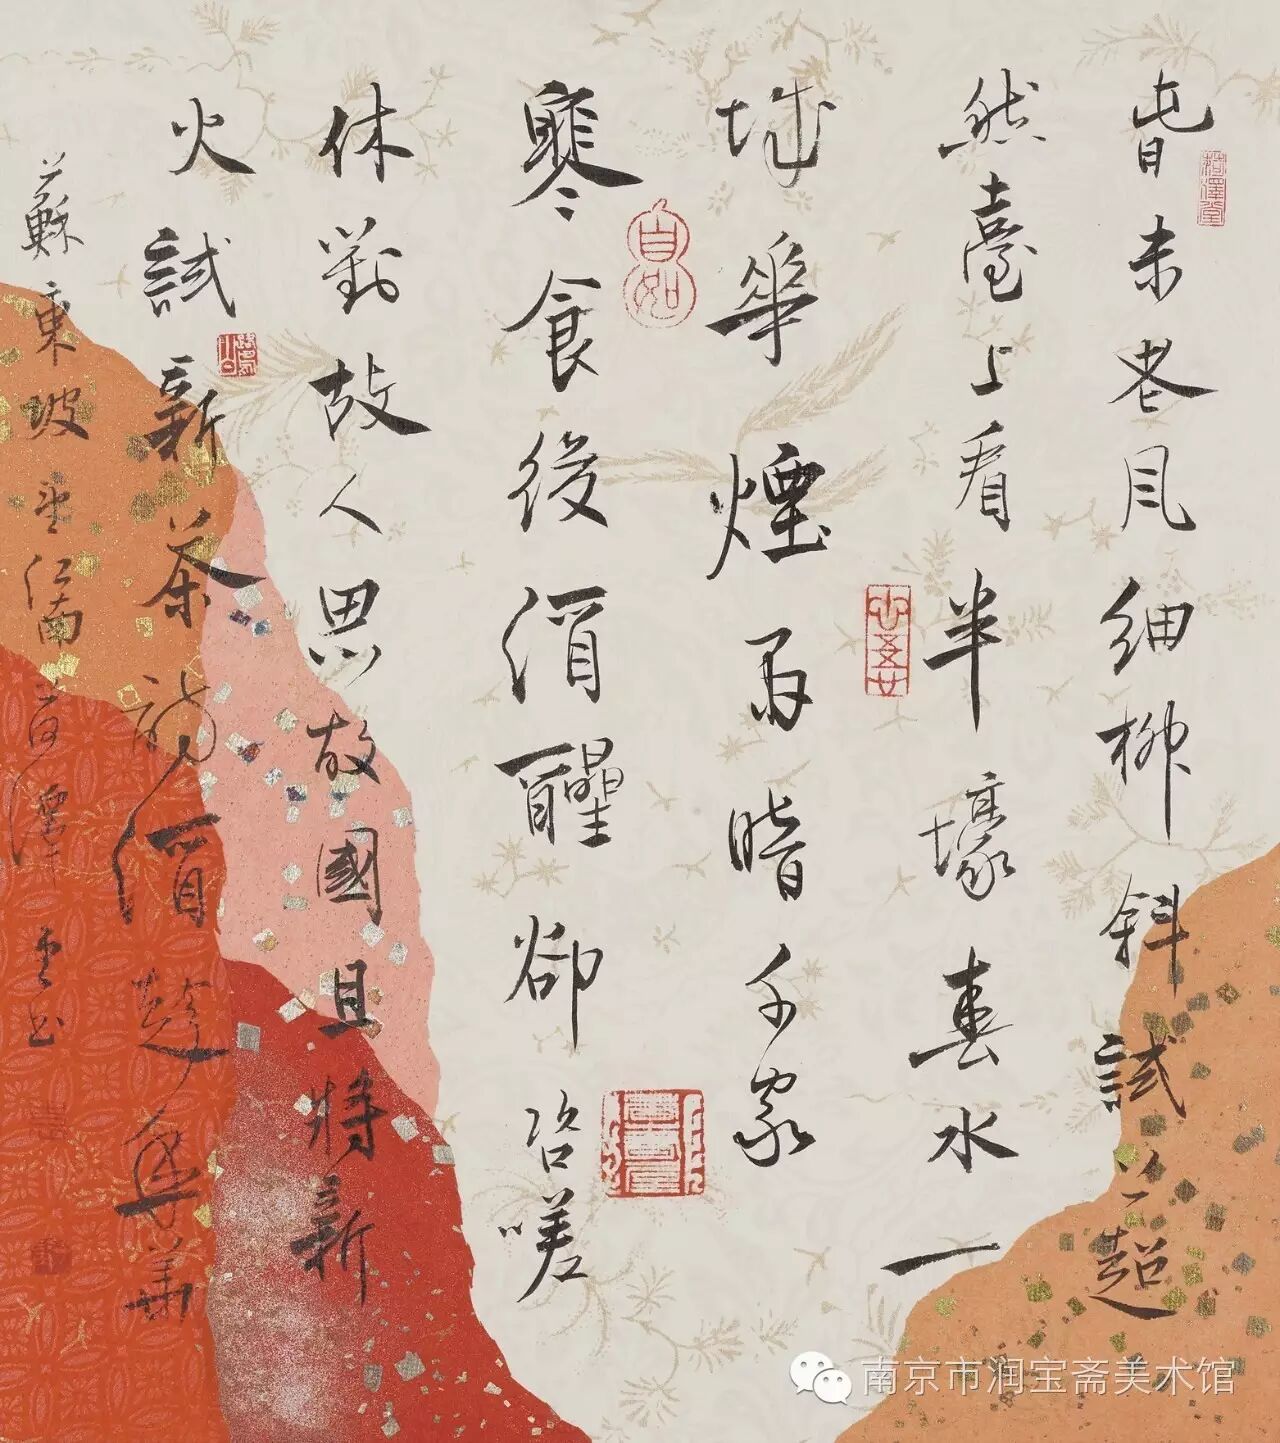 春未老風細柳斜試上超
然臺上看半壕春水一
城華煙雨暗千家
寒食後酒醒卻咨嗟
休對故人思故國且將新
火試新茶詩酒趁年華
蘇東坡望江南 書
自如
南京市润宝斋美术馆